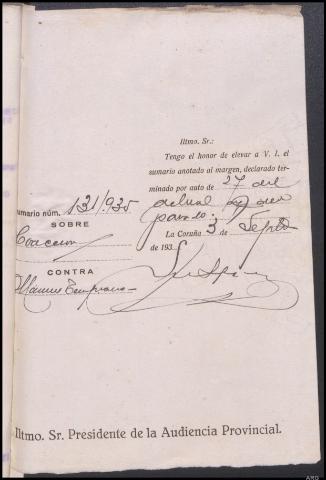 Iltmo. Sr.:
Tengo el honor de elevar a V. I. el
sumario anotado al margen, declarado ter-
minado por auto de 27 del
pasado
La Coruña 3 de Septbre
de 193
umario núm. 131/935
SOBRE
Coaccion
CONTRA
Manuel Temprano
Iltmo. Sr. Presidente de la Audiencia Provincial.